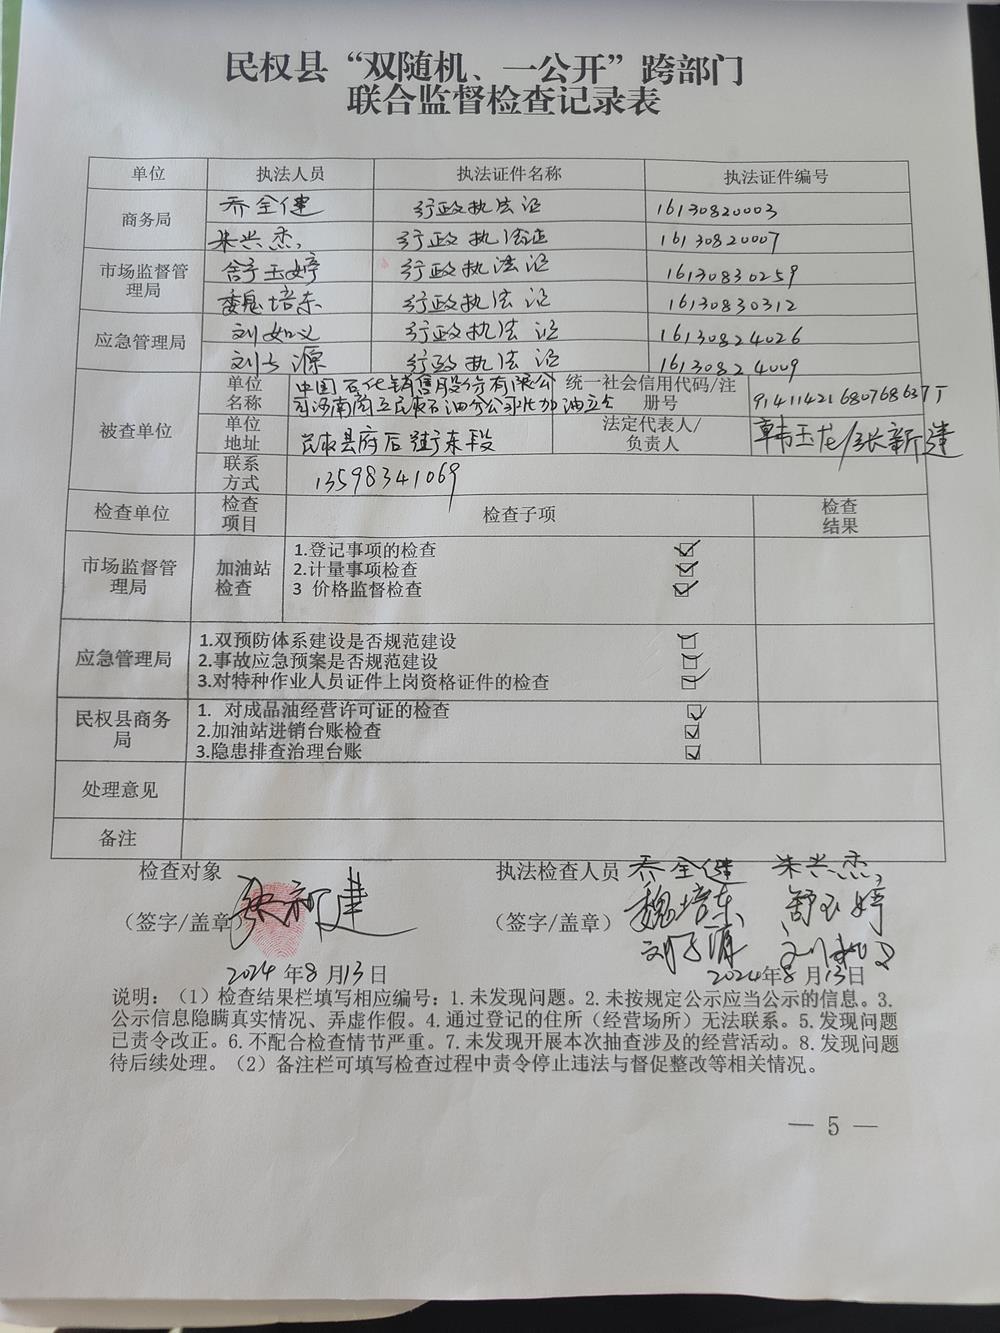 民权县“双随机、一公开”跨部门
联合监督检查记录表
单位 执法人员 执法证件名称 执法证件编号
商务局 乔全健 行政执法证 16130820003
朱兴杰 行政执法证 16130820007
市场监督管理局 舒玉婷 行政执法证 16130830259
魏培东 行政执法证 16130830312
应急管理局 刘如义 行政执法证 16130824026
刘 源 行政执法证 16130824009
被查单位 单位名称 中国石化销售股份有限公
司河南商丘民权石油分公司 加油站 统一社会信用代码/注册号 91411421680768637
单位地址 民权县府后街东段 法定代表人/负责人 韩玉龙/张新建
联系方式 13598341069
检查单位 检查项目 检查子项 检查结果
市场监督管理局 加油站检查 1.登记事项的检查 ☑
2.计量事项检查 ☑
3 价格监督检查 ☑
应急管理局 1.双预防体系建设是否规范建设 ☑
2.事故应急预案是否规范建设 ☑
3.对特种作业人员证件上岗资格证件的检查 ☑
民权县商务局 1. 对成品油经营许可证的检查 ☑
2.加油站进销台账检查 ☑
3.隐患排查治理台账 ☑
处理意见
备注
检查对象 执法检查人员 乔全健 朱兴杰
（签字/盖章） 张新建 （签字/盖章） 魏培东 舒玉婷
刘 源 刘如义
2024年8月13日 2024年8月13日
说明：（1）检查结果栏填写相应编号：1.未发现问题。2.未按规定公示应当公示的信息。3.
公示信息隐瞒真实情况、弄虚作假。4.通过登记的住所（经营场所）无法联系。5.发现问题
已责令改正。6.不配合检查情节严重。7.未发现开展本次抽查涉及的经营活动。8.发现问题
待后续处理。（2）备注栏可填写检查过程中责令停止违法与督促整改等相关情况。
— 5 —